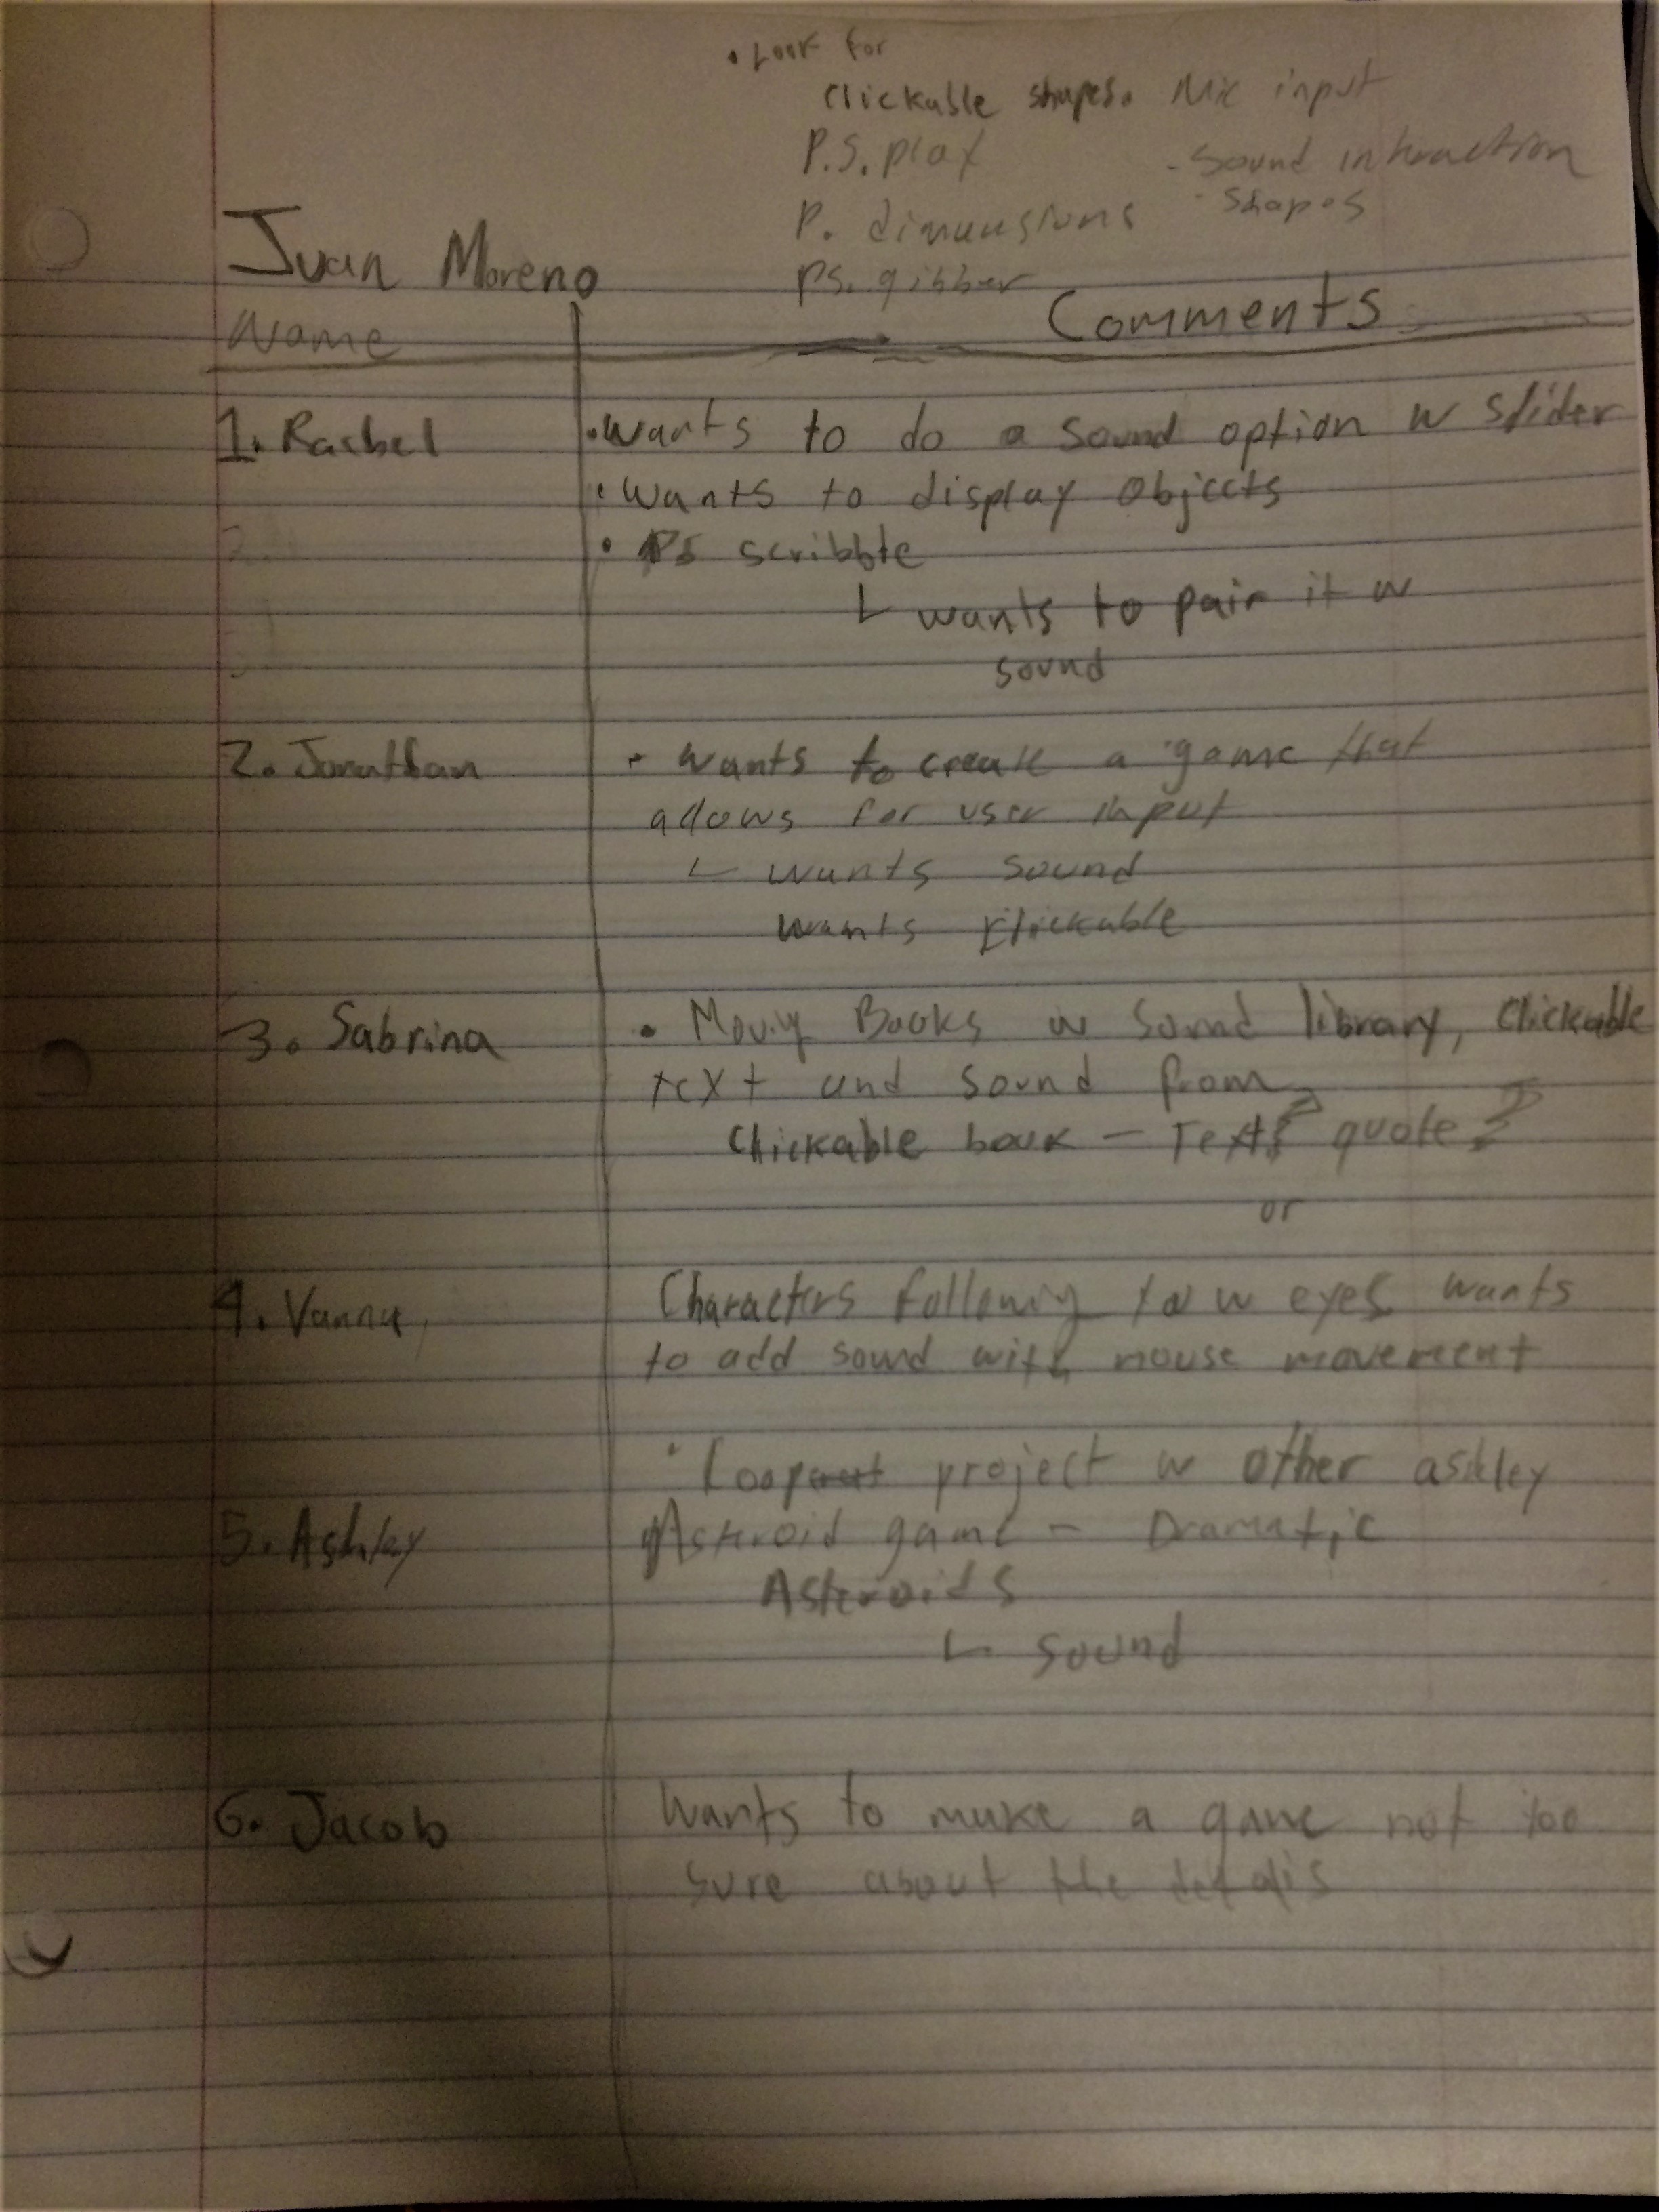 • Look for
Clickable shapes. Mic input
P.S. play - Sound interaction
P. dimensions - Shapes
P5. gibber
Juan Moreno
Name Comments
1. Rachel • Wants to do a sound option w slider
• Wants to display objects
• P5 scribble
wants to pair it w
sound
2. Jonathan • wants to create a game that
allows for user input
wants sound
wants clickable
3. Sabrina • Moving Books w Sound library, Clickable
text and sound from
Clickable book - Text? quote?
or
4. Vanna, Characters following w eyes wants
to add sound with mouse movement
• project w other ashley
5. Ashley Asteroid game - Dramatic
Asteroids
sound
6. Jacob Wants to make a game not too
sure about the details